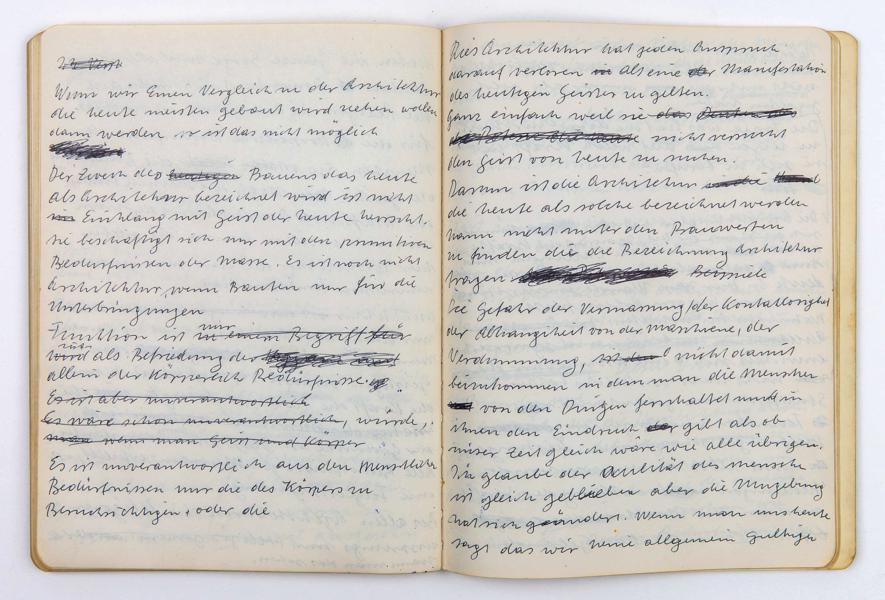 Wenn wir Einen Vergleich zu der Architektur
die heute meisten gebaut wird ziehen wollen
dann werden ist das nicht möglich
Der Zweck des heutigen Bauens das heute
als Architektur bezeichnet wird ist nicht
im Einklang mit Geist der heute herrscht.
sie beschäftigt sich nur mit den primitiven
Bedürfnissen der Masse. Es ist noch nicht
Architektur, wenn Bauten nur für die
Unterbringungen
Funktion ist nur in einem Begriff für
wird als Befriedung der
allein der Körperlich Bedürfnisse
Es ist aber unverantwortlich
Es wäre schon unverantwortlich, würde,
man wenn man Geist und Körper
Es ist unverantwortlich aus den Menschliche
Bedürfnissen nur die des Körpers zu
Berucksichtigen, oder die
Dies Architektur hat jeden Anspruch
darauf verloren in als eine der Manifestation
des heutigen Geistes zu gelten.
Ganz einfach weil sie das
nicht versucht
den Geist von heute zu suchen.
Darum ist die Architektur
die heute als solche bezeichnet werden
kann nicht unter den Bauwerken
zu finden die die Bezeichnung Architektur
tragen Beispiele
Die Gefahr der Vermassung/der Kontaktlosigkeit
der Abhangigheit von der Maschiene, der
Verdummung, ist nicht damit
beizukommen in dem man die Menschen
von den Dingen fernhaltet und in
ihnen den Eindruck der gibt als ob
unser Zeit gleich wäre wie alle übrigen.
Ich glaube der des mensche
ist gleich geblieben aber die Umgebung
hat sich geändert. Wenn man uns heute
sagt das wir keine allgemein gultigen